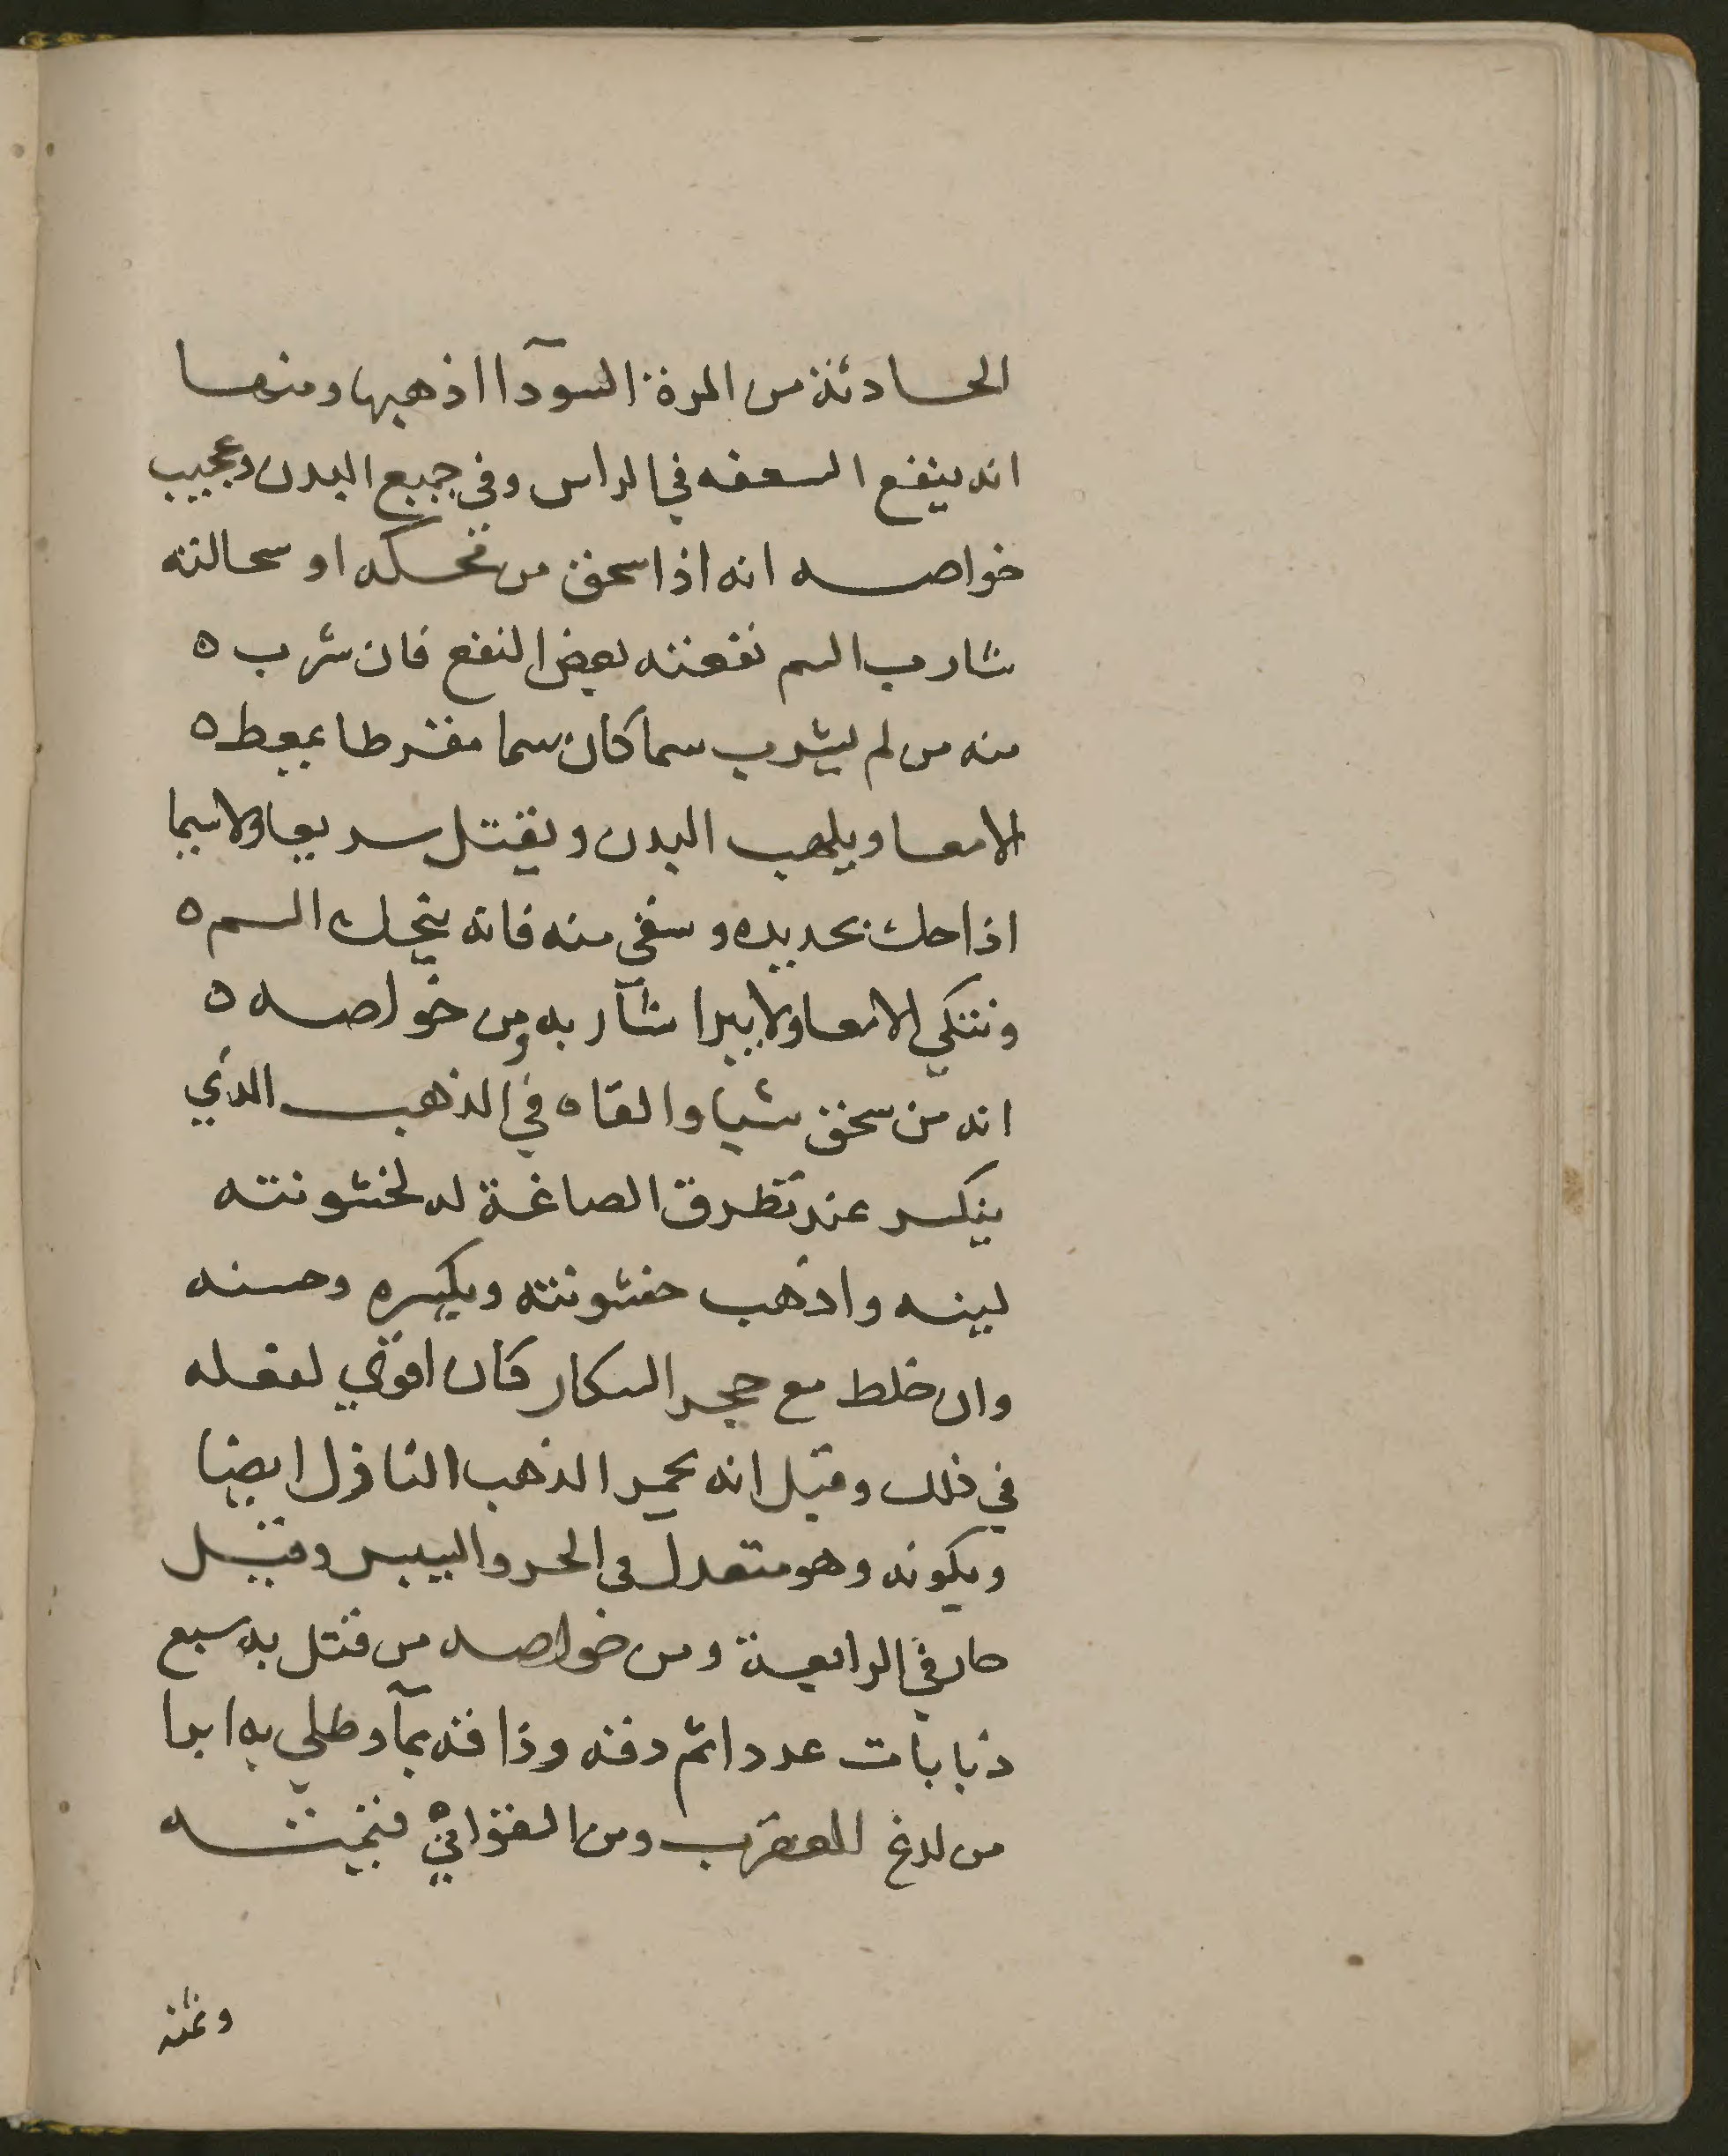 الحادثة من المرة السودآ اذهبها ومنها
انه ينفع السعفه في الراس وفي جميع البدن وعجيب
خواصه انه اذا سحق من محكه او سحالته
شارب السم نفعته بعض النفع فان شرب ه
منه من لم يشرب سما كان سما مفرطا يمعط ه
الامعا ويلهب البدن ويقتل سريعا ولاسيما
اذا حك بحديده وسقي منه فانه السم ه
وتنكي الامعا ولا يبرا شآربه ومن خواصه ه
انه من سحق شيا والقاه في الذهب الذي
ينكسر عند تطرق الصاغة له لخشونته
لينه واذهب خشونته ويكسره وحسنه
وان خلط مع حجر السكار كان اقوي لفعله
في ذلك وقيل انه يحمر الذهب النازل ايضا
ويكونه وهو متعدل في الحر واليبس وقيل
حار في الرابعة ومن خواصه من قتل به سبع
ذبابات عددا ثم دقه وذافه بمآ وطلي به ابرا
من لدغ العقرب ومن
وثمنه